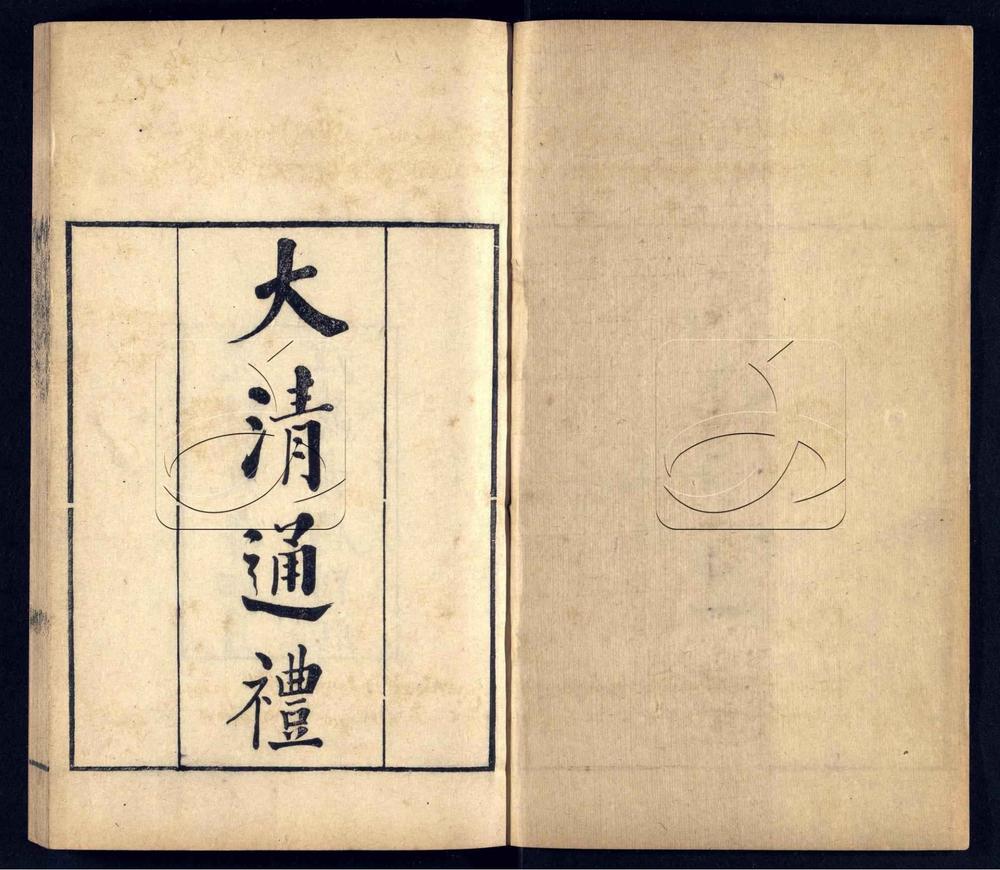 大清通禮